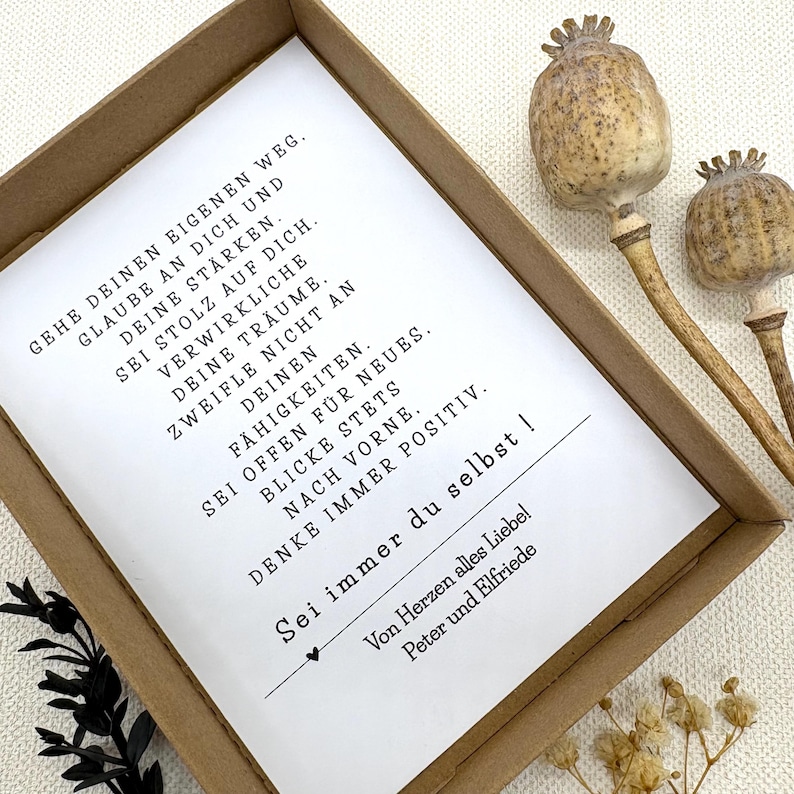 GEHE DEINEN EIGENEN WEG.
GLAUBE AN DICH UND
DEINE STÄRKEN.
SEI STOLZ AUF DICH.
VERWIRKLICHE
DEINE TRÄUME.
ZWEIFLE NICHT AN
DEINEN
FÄHIGKEITEN.
SEI OFFEN FÜR NEUES.
BLICKE STETS
NACH VORNE.
DENKE IMMER POSITIV.
Sei immer du selbst !
Von Herzen alles Liebe!
Peter und Elfriede